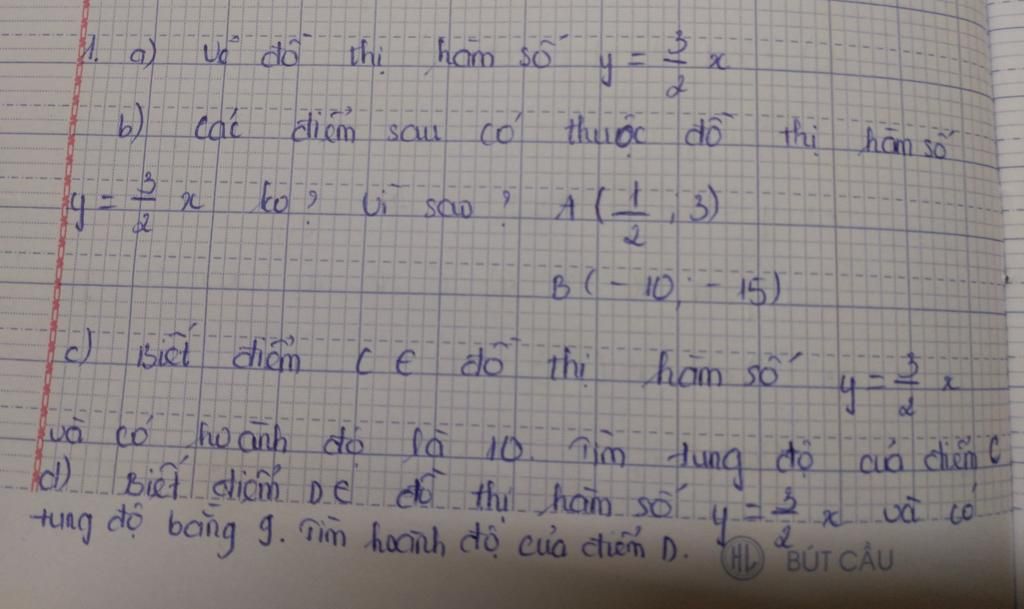 1. a) Vẽ đồ thị hàm số y = 3/2 x
b) các điểm sau có thuộc đồ thị hàm số
y = 3/2 x ko? Vì sao? A (1/2 ; 3)
B (-10; -15)
c) Biết điểm C ∈ đồ thị hàm số y = 3/2 x
và có hoành độ là 10. Tìm tung độ của điểm C
d) Biết điểm D ∈ đồ thị hàm số y = 3/2 x và có
tung độ bằng 9. Tìm hoành độ của điểm D.
HL BÚT CẦU